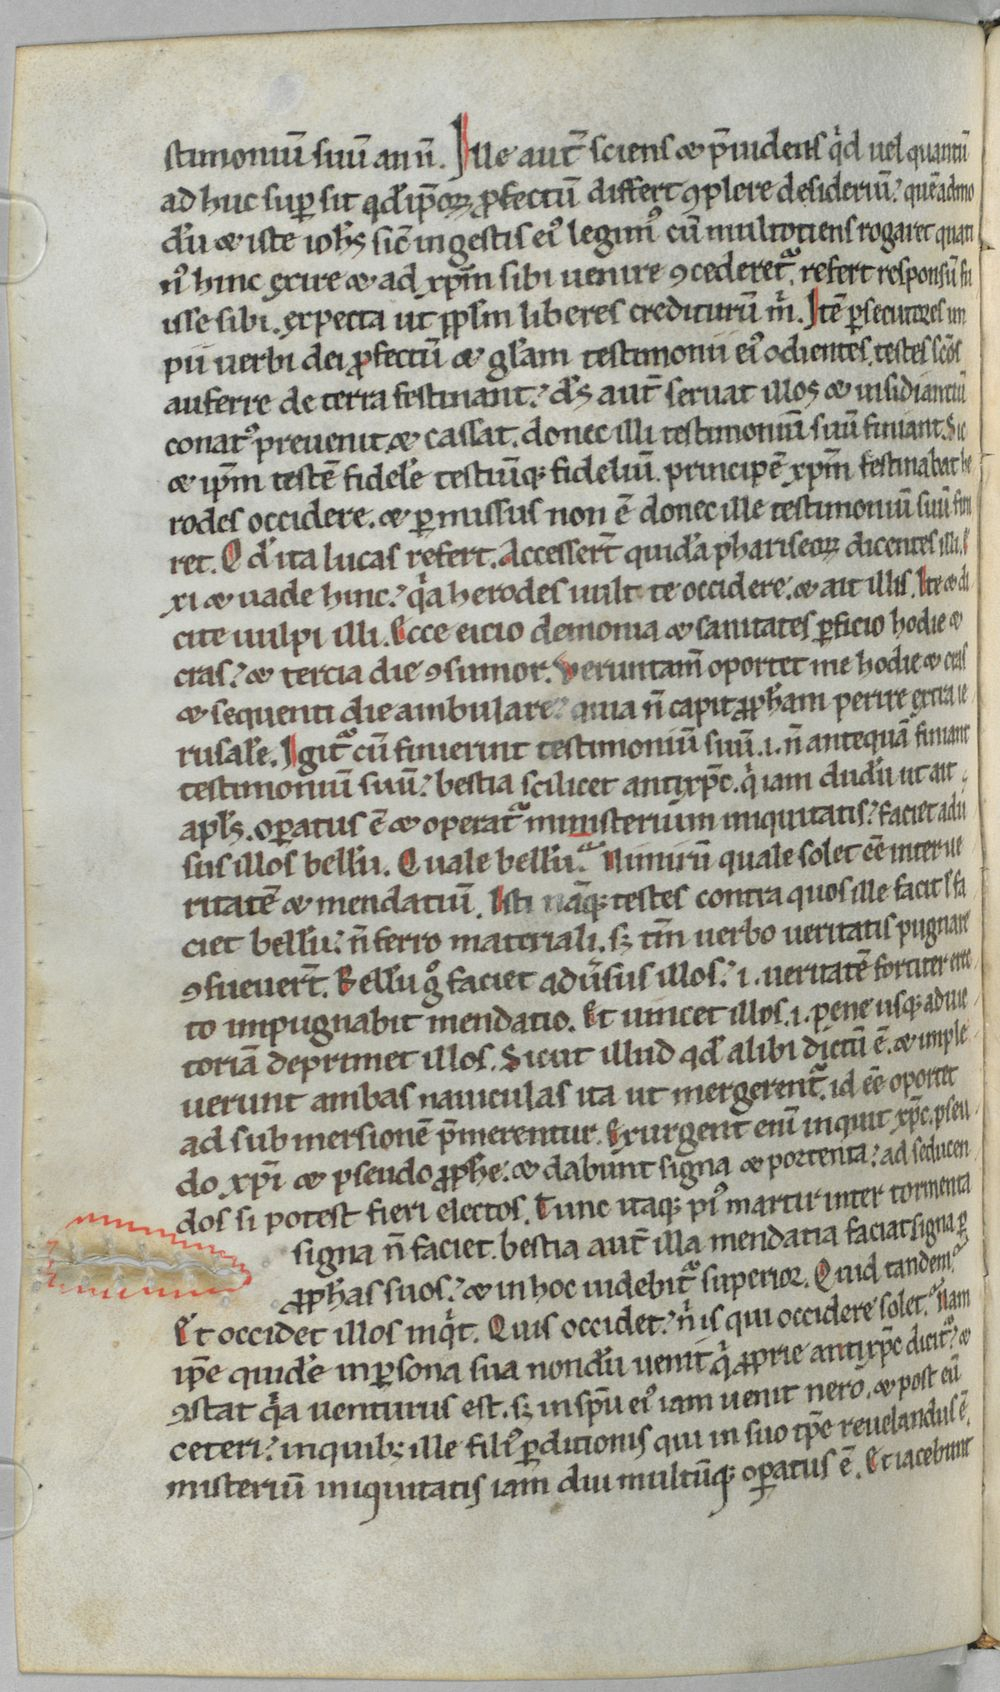 stimoniũ suũ an n̄. Ille aut̃ sciens ⁊ p̃uidens qͥd uel quantũ
ad huc suꝑ sit qđ ip̃oꝝ ꝓfectũ differt ꝯplere desideriũ. quẽadmo
dũ ⁊ iste ioħs sic̃ in gestis eiꝰ legimꝰ cũ multotiens rogaret quati
nꝰ hinc exire ⁊ ad xp̃m sibi uenire ꝯcederet᷑, refert responsũ fu
isse sibi. expecta ut pp̃lm liberes crediturũ m̃. Itẽ ꝑsecutores im
pii uerbi dei ꝓfectũ ⁊ gl̃am testimonii eiꝰ odientes, testes sc̃os
auferre de terra festinant. dñs aut̃ seruat illos ⁊ insidiantiũ
conatꝰ preuenit ⁊ cassat, donec illi testimoniũ suũ finiant. Sic
⁊ ip̃m testẽ fidelẽ testiũq; fideliũ principẽ xp̃m festinabat he
rodes occidere. ⁊ ꝑmissus non ẽ donec ille testimoniũ suũ fini
ret. Qđ ita lucas refert. Accessert̃ quidã phariseoꝝ dicentes illi. E
xi ⁊ uade hinc. qͥa herodes uult te occidere. ⁊ ait illis. Ite ⁊ di
cite uulpi illi. Ecce eicio demonia ⁊ sanitates ꝑficio hodie ⁊
cras. ⁊ tercia die ꝯsumor. Veruntam̃ oportet me hodie ⁊ cras
⁊ sequenti die ambulare. quia n̄ capit ꝓpħam perire extra ie
rusalẽ. Igit᷑ cũ finierint testimoniũ suũ .i. n̄ antequã finiant
testimoniũ suũ. bestia scilicet antixp̃c. qͥ iam dudũ ut ait
apl̃s, oꝑatus ẽ ⁊ operat᷑ ministerium iniquitatis. faciet aduͥ
sus illos bellũ. Quale bellũ? Nimirũ quale solet ẽe inter ue
ritatẽ ⁊ mendatiũ. Isti nãq; testes contra quos ille facit ł fa
ciet bellũ. n̄ ferro materiali, sꝫ tm̃ uerbo ueritatis pugnare
ꝯsueuert̃. Bellũ gͦ faciet aduͥsus illos. .i. ueritatẽ fortiter erec
to impugnabit mendatio. Et uincet illos .i. pene usq; ad uic
toriã deprimet illos. Sicut illud qđ alibi dictũ ẽ. ⁊ imple
uerunt ambas nauiculas ita ut mergerent᷑. id ẽe oportet
ad submersionẽ p̃merentur. Exurgent eni̅ inquit xp̃c pseu
do xp̃i ⁊ pseudo ꝓpħe. ⁊ dabunt signa ⁊ portenta. ad seducen
dos si potest fieri electos. Tunc itaq; piꝰ martir inter tormenta
signa n̄ faciet. bestia aut̃ illa mendatia faciat signa ꝑ
ꝓpħas suos. ⁊ in hoc uidebit᷑ superior. Quid tandem?
Et occidet illos inqͥt. Quis occidet. n̄ is qui occidere solet? Nam
ip̃e quidẽ in ꝑsona sua nondũ uenit qͥ ꝓprie antixp̃c dicit᷑. ⁊
ꝯstat qͥa venturus est. sꝫ in sp̃u eiꝰ iam uenit nero, ⁊ post eũ
ceteri. in quibꝫ ille filiꝰ ꝑditionis qui in suo tp̃e reuelandus ẽ
misteriũ iniquitatis iam diu multũq; oꝑatus ẽ. Et iacebunt